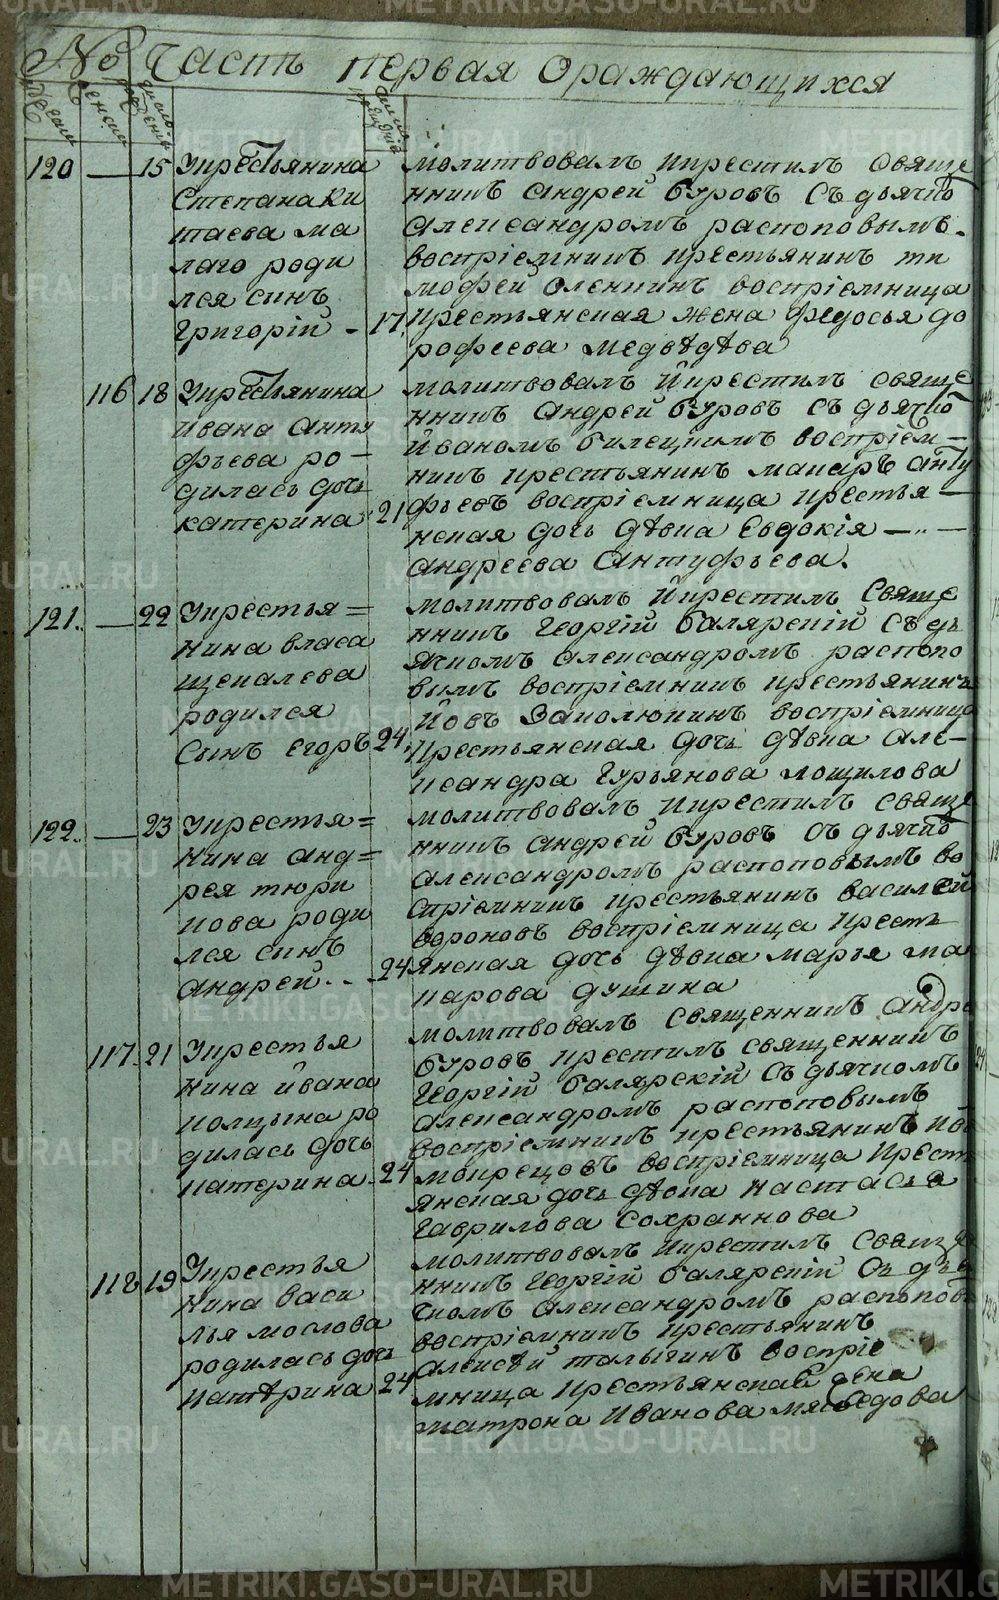 METRIKI.GASO-URAL.RU
№ Часть первая Ораждающихся
120 — 15 Укрестьянина
Степана Ки
таева ма
лаго роди
лся синъ
григорій - 17
молитвовалъ икрестилъ свяще
нникъ андрей буровъ съ дьячко
александромъ распоповымъ.
воспріемникъ крестьянинъ ти
мофей оленнинъ воспріемница
крестьянская жена федосья до
рофеева медвѣдѣва
116 18 Укрестьянина
ивана анту
фьева ро-
дилась дочь
катерина 21
молитвовалъ йкрестилъ свяще
нникъ андрей буровъ съ дьячко
йваномъ билецкимъ воспріем-
никъ крестьянинъ макаръ анту
фьевъ воспріемница крестья-
нская дочь дѣвка Евдокія —
андреева антуфьева.
121. — 22 Укрестья=
нина власа
щекалева
родился
сынъ егоръ 24
молитвовалъ йкрестилъ свяще
нникъ георгій балярскій съ дь
ячкомъ александромъ распопо
вымъ воспріемникъ крестьянинъ
йовъ Заколюпинъ воспріемница
крестьянская дочь дѣвка але-
ксандра гурьянова лощилова
122. — 23 Укрестья=
нина анд=
рея тюри
кова роди
лся синъ
андрей . . 24
молитвовалъ икрестилъ свяще
нникъ андрей буровъ съ дьячко
александромъ распоповымъ во
спріемникъ крестьянинъ василей
вороновъ воспріемница кресть
янская дочь дѣвка марья ма
карова душина
117. 21 Укрестья
нина ивана
колцына ро
дилась дочь
катерина 24
молитвовалъ священникъ андре
буровъ крестилъ священникъ
георгій балярскій съ дьячкомъ
александромъ распоповымъ
воспріемникъ крестьянинъ
мокрецовъ воспріемница кресть
янская дочь дѣвка настасья
гаврилова сохраннова
118 19 Укрестья
нина васи
лья мослова
родилась дочь
катѣрина 24
молитвовалъ икрестилъ свяще
нникъ георгій балярскій съ дья
чкомъ александромъ распопов
воспріемникъ крестьянинъ
алексѣй талыгинъ воспріе
мница крестьянская жена
матрона иванова мясоедова